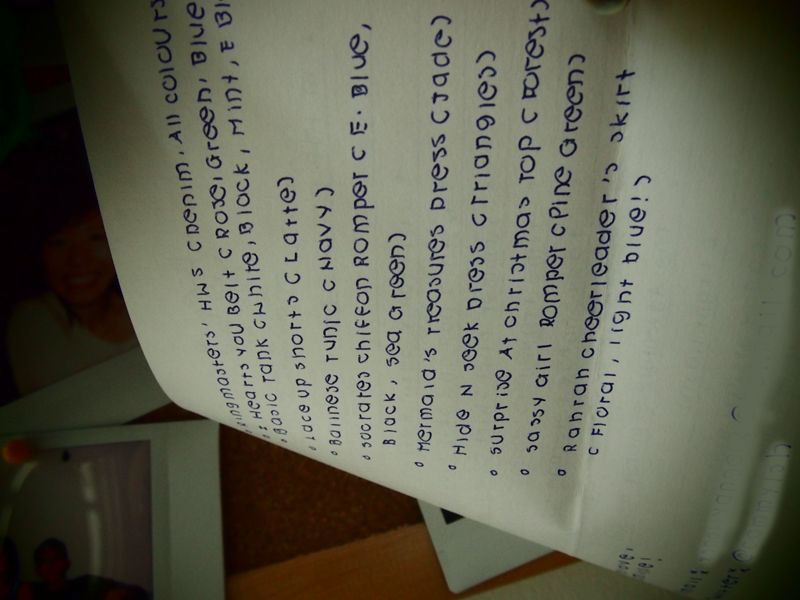 ingmasters' HWS (Denim, All colours
Hearts you Belt (Rose, Green, Blue
Basic Tank (White, Black, Mint, E Bl
Lace up shorts (Latte)
Balinese Tunic (Navy)
Socrates chiffon Romper (E. Blue,
Black, Sea Green)
Mermaid's Treasures Dress (Jade)
Hide N Seek Dress (Triangles)
Surprise At Christmas Top (Forest)
Sassy Girl Romper (Pine Green)
Rahrah cheerleader's skirt
(Floral, light blue!)